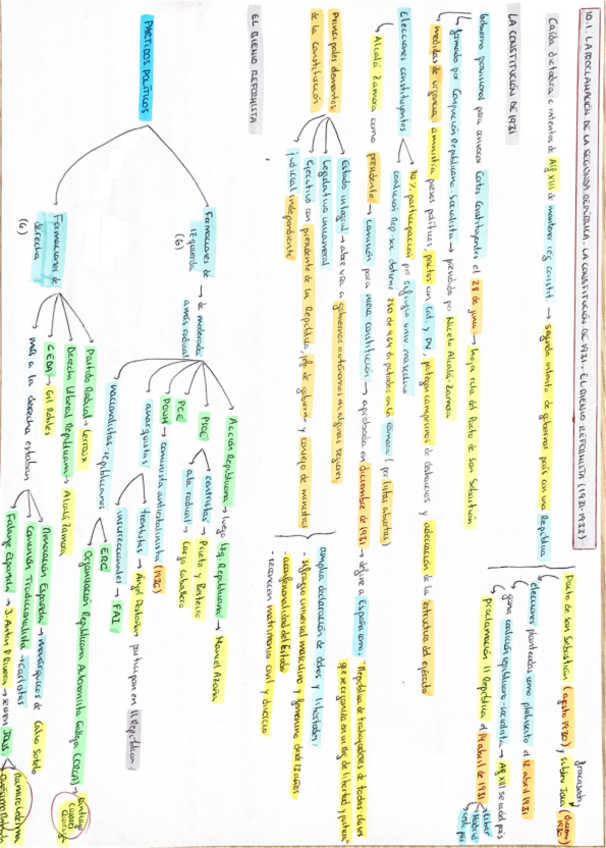 10.1. LA PROCLAMACIÓN DE LA SEGUNDA REPÚBLICA. LA CONSTITUCIÓN DE 1931. EL BIENIO REFORMISTA (1931-1933)
Caída dictadura e intentos de Alf XIII de mantener rég constit. → segundo intento de gobernar país con una República
Pacto de San Sebastián (agosto 1930) y sublev Jaca
fracasado
elecciones planteadas como plebiscito el 12 abril 1931
gana coalición republicano-socialista → Alf XIII se va del país
proclamación II República el 14 abril de 1931
LA CONSTITUCIÓN DE 1931
Gobierno provisional para convocar Cortes Constituyentes el 28 de junio → hoja ruta del Pacto de San Sebastián
formado por Conjunción Republicano-Socialista → presidido por Niceto Alcalá-Zamora
medidas de urgencia: amnistía presos políticos, pactos con Cat. y PV, prórroga campesinos de desahucios y adecuación de la estructura del ejército
Elecciones constituyentes
70% participación por sufragio univ. masculino
coalición Rep-soc obtiene 250 de 464 diputados en la cámara (por listas abiertas)
Alcalá Zamora como presidente → comisión para nueva constitución → aprobada en diciembre de 1931 → define a España como: "República de trabajadores de todas clases
que se organiza en un rég. de libertad y justicia"
Principales elementos de la constitución
Estado integral → abre vía a gobiernos autónomos en algunas regiones
Legislativo unicameral
Ejecutivo con presidente de la República, jefe de gobierno y consejo de ministros
judicial independiente
amplia declaración de dchos y libertades:
- sufragio universal masculino y femenino desde 23 años
- aconfesionalidad del Estado
- reconocen matrimonio civil y divorcio
EL BIENIO REFORMISTA
PARTIDOS POLÍTICOS
Formaciones de izquierda (6) → de moderada a más radical
Acción Republicana → luego Izq. Republicana → Manuel Azaña
PSOE
centristas → Prieto y Besteiro
ala radical → Largo Caballero
PCE
POUM → comunista antiestalinista
anarquistas
treintistas → Ángel Pestaña
insurreccionales → FAI
nacionalistas-republicanos
ERC
Organización Republicana Autonomista Gallega (ORGA)
Formaciones de derecha (6)
Partido Radical → Lerroux
Derecha Liberal Republicana → Alcalá Zamora
CEDA → Gil Robles
más a la derecha estaban
Renovación Española → monárquicos de Calvo Sotelo
Comunión Tradicionalista → Carlistas
Falange Española → J. Anton P Rivera → se unen JONS
Ramiro Ledesma
Onésimo Redondo